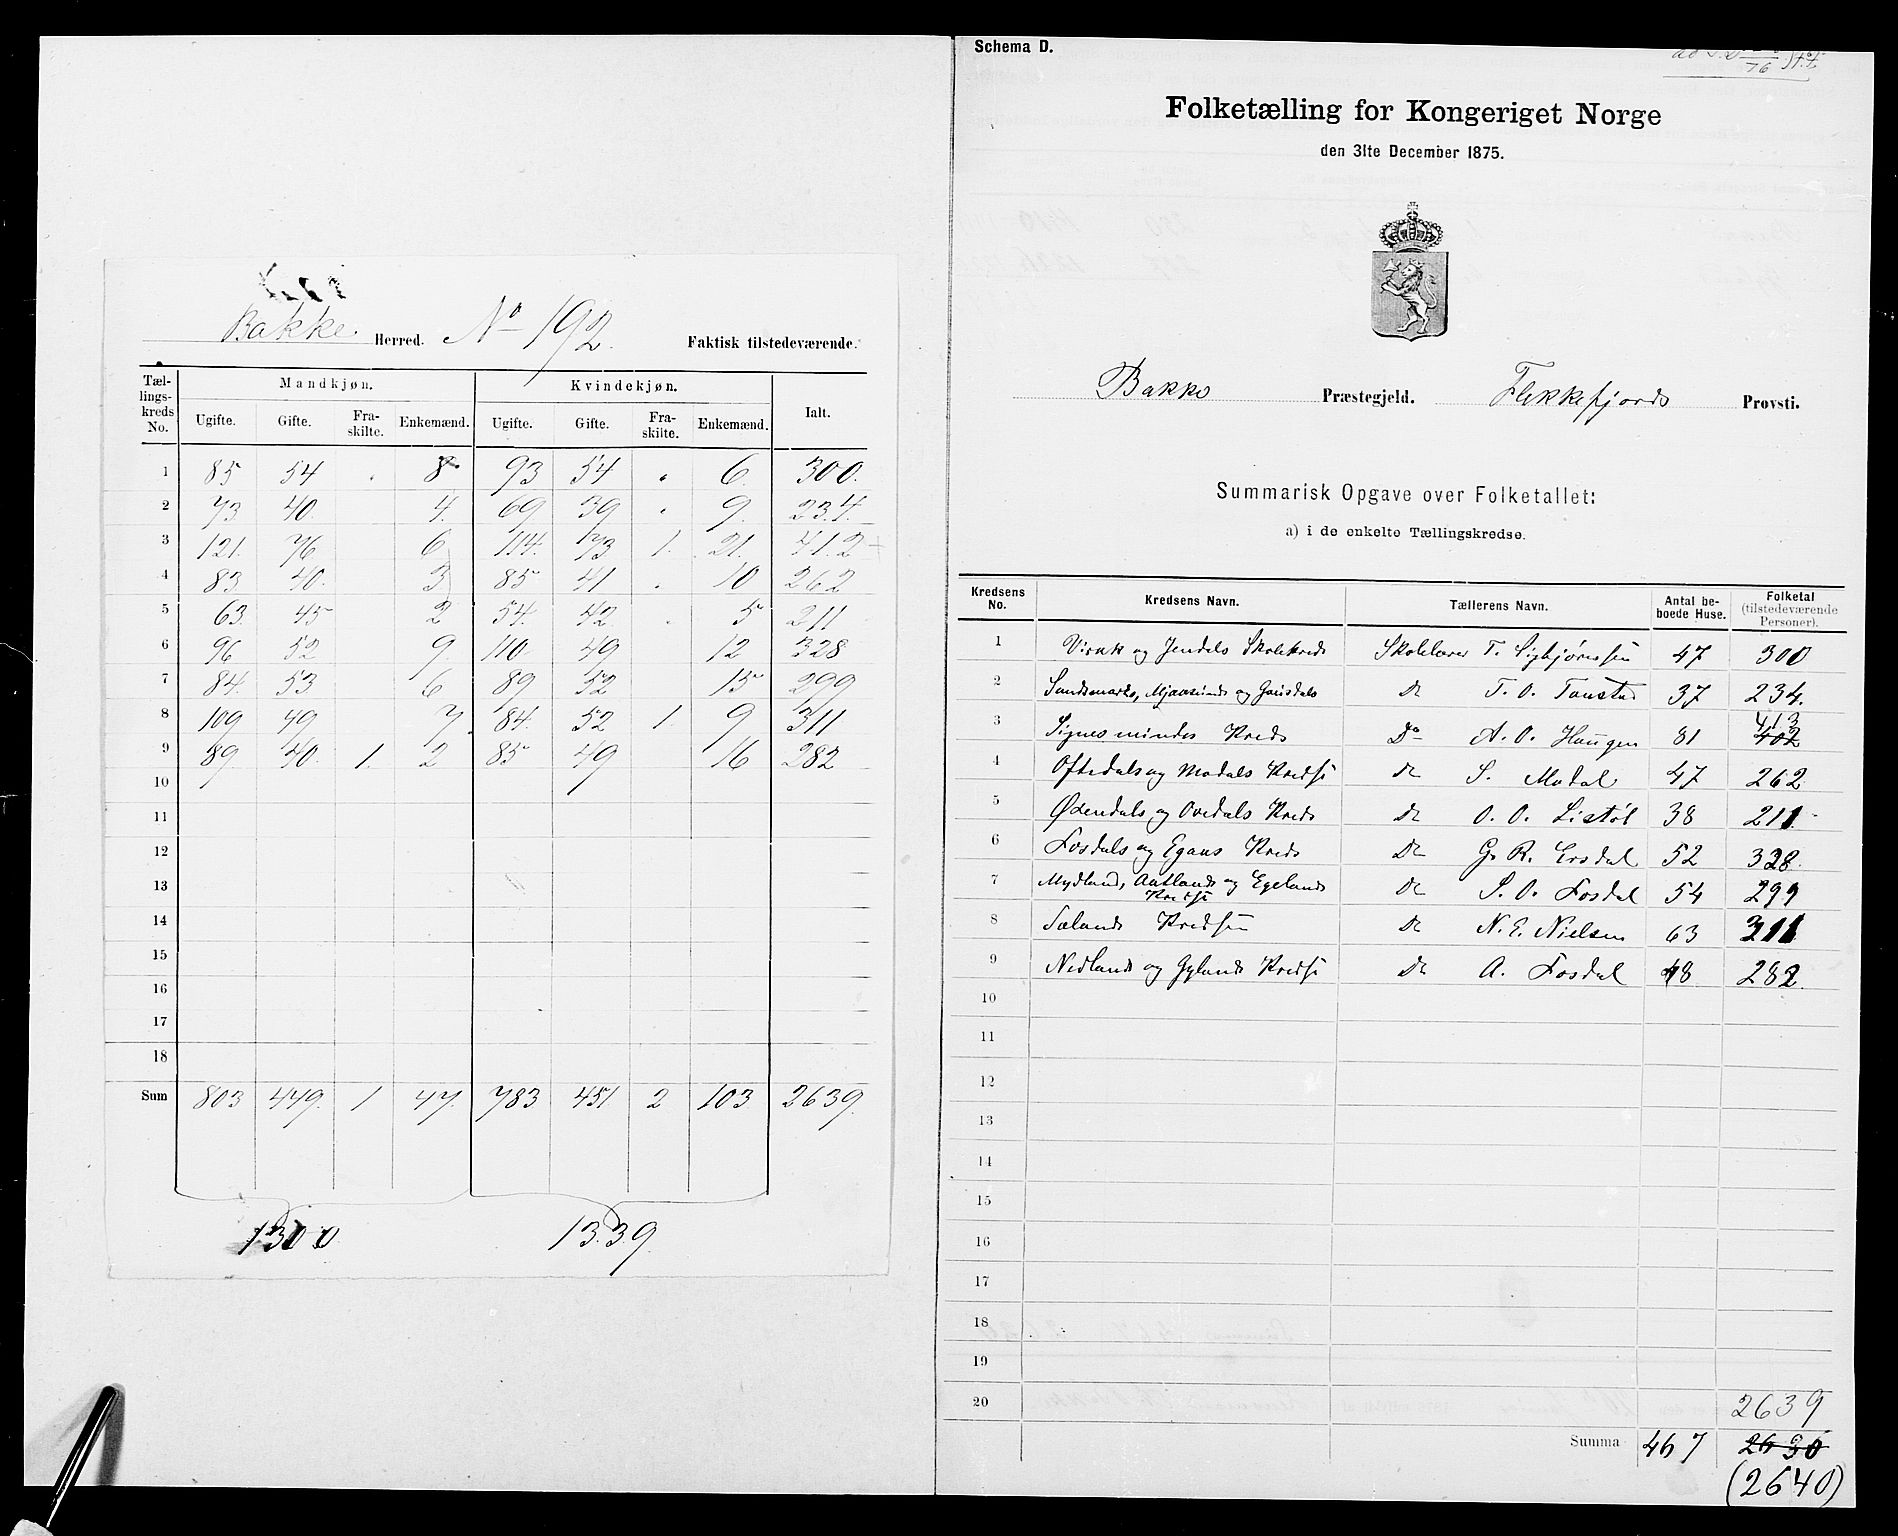 Bakke Herred. No 192. Faktisk tilstedeværende.
Tællingskreds No. Mandkjøn. Kvindekjøn. Ialt.
Ugifte. Gifte. Fraskilte. Enkemænd. Ugifte. Gifte. Fraskilte. Enkemænd.
1 85 54 . 8 93 54 . 6. 300.
2 73 40. 4. 69 39 . 9. 234.
3 121. 76 6 114. 73 1. 21. 412
4 83. 40. 3 85 41 . 10 262
5 63. 45 2 54. 42. . 5 211
6 96 52 9. 110 49 12 328
7 84. 53 6 89 52 15 299
8 109 49 7. 84. 52 1. 9 311
9 89. 40. 1. 2 85 49 16 282
10
11
12
13
14
15
16
17
18
Sum 803 449. 1 47. 783 451 2 103 2639.
1300 1339.
Schema D.
Folketælling for Kongeriget Norge
den 31te December 1875.
Bakke Præstegjeld. Flekkefjords Provsti.
Summarisk Opgave over Folketallet:
a) i de enkelte Tællingskredse.
Kredsens No. Kredsens Navn. Tællerens Navn. Antal beboede Huse. Folketal (tilstedeværende Personer).
1 Virak og Jendals Skolekreds Skolelærer T. Sigbjørnsen 47 300
2 Sandsmarks, Mjaasunds og Gausdals do T. O. Tonstad 37 234.
3 Signes mindes Kreds Do A. O. Haugen 81 413 402
4 Oftedals og Modals Kredse do S. Modal 47 262
5 Øxendals og Ovedals Kreds do O. O. Listøl 38 211.
6 Losdals og Egans Kreds do G. R. Ersdal 52 328.
7 Mydlands, Aatlands og Egelands Kredse do S. O. Losdal 54 299
8 Sælands Kredsen do N. E. Nielsen 63 311
9 Nedlands og Gylands Kredse do A. Losdal 48 282.
10
11
12
13
14
15
16
17
18
19
20 2639
Summa 467 2630
(2640)